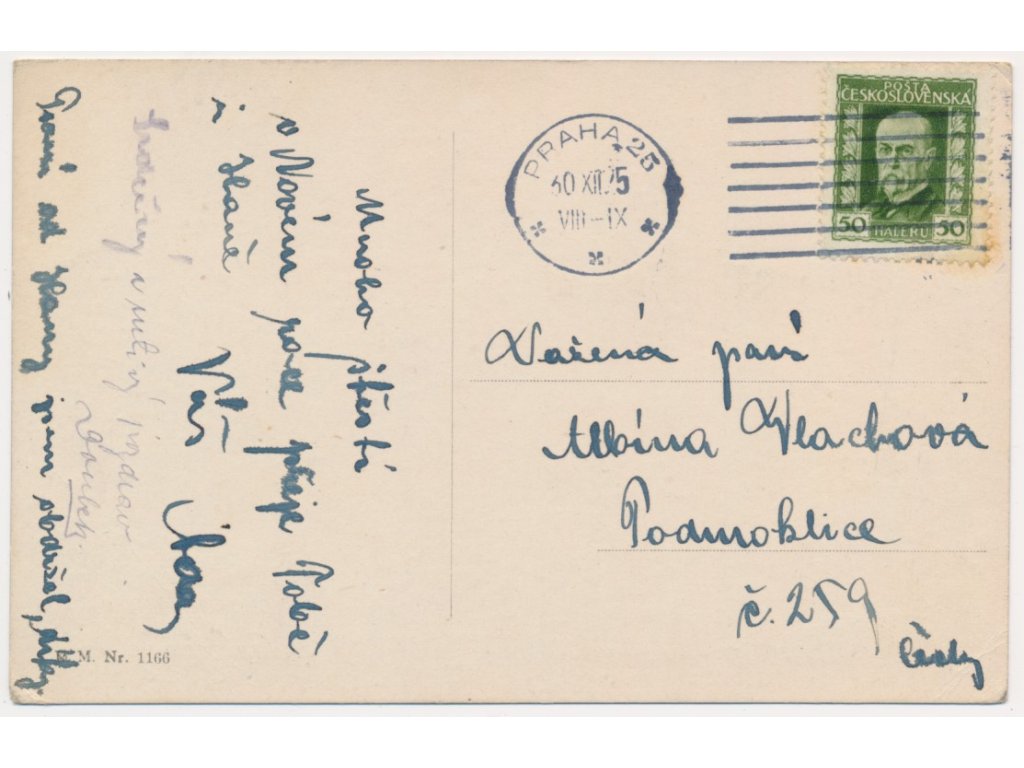 Mnoho štěstí
v Novém roce přeje Tobě
i Haně
Váš
Srdečný a uctivý pozdrav
Psaní od Hany jsem obdržel, díky.
B. M. Nr. 1166
PRAHA 25
30 XII 25
VIII-IX
POŠTA
ČESKOSLOVENSKÁ
50 HALÉŘŮ 50
Vážená paní
Albína Vlachová
Podmoklice
č. 259
Čechy